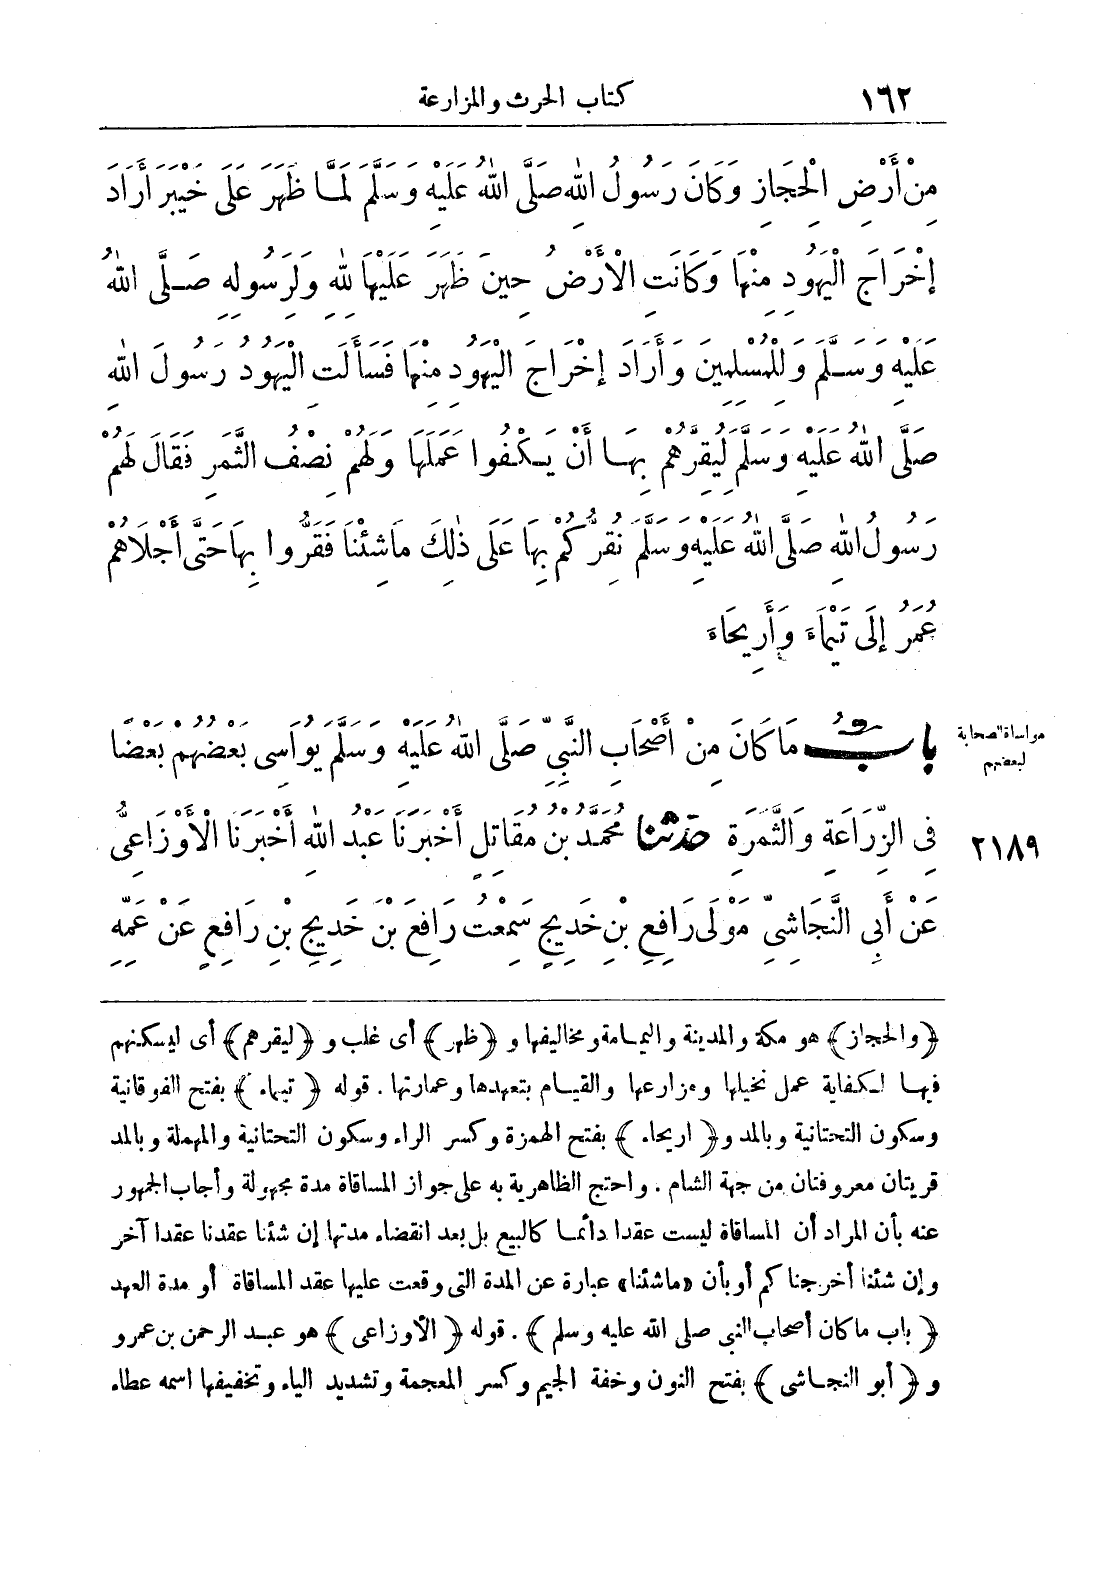 ١٦٢ كتاب الحرث والمزارعة
مِنْ أَرْضِ الْحِجَازِ وَكَانَ رَسُولُ اللهِ صَلَّى اللهُ عَلَيْهِ وَسَلَّمَ لَمَّا ظَهَرَ عَلَى خَيْبَرَ أَرَادَ
إِخْرَاجَ الْيَهُودِ مِنْهَا وَكَانَتِ الْأَرْضُ حِينَ ظَهَرَ عَلَيْهَا لِلهِ وَلِرَسُولِهِ صَلَّى اللهُ
عَلَيْهِ وَسَلَّمَ وَلِلْمُسْلِمِينَ وَأَرَادَ إِخْرَاجَ الْيَهُودِ مِنْهَا فَسَأَلَتِ الْيَهُودُ رَسُولَ اللهِ
صَلَّى اللهُ عَلَيْهِ وَسَلَّمَ لِيُقِرَّهُمْ بِهَا أَنْ يَكْفُوا عَمَلَهَا وَلَهُمْ نِصْفُ الثَّمَرِ فَقَالَ لَهُمْ
رَسُولُ اللهِ صَلَّى اللهُ عَلَيْهِ وَسَلَّمَ نُقِرُّكُمْ بِهَا عَلَى ذٰلِكَ مَاشِئْنَا فَقَرُّوا بِهَا حَتَّى أَجْلَاهُمْ
عُمَرُ إِلَى تَيْمَاءَ وَأَرِيحَاءَ
بابُ مَا كَانَ مِنْ أَصْحَابِ النَّبِيِّ صَلَّى اللهُ عَلَيْهِ وَسَلَّمَ يُوَاسِى بَعْضُهُمْ بَعْضًا
مواساة الصحابة
لبعضهم
فِى الزِّرَاعَةِ وَالثَّمَرَةِ حَدَّثَنَا مُحَمَّدُ بْنُ مُقَاتِلٍ أَخْبَرَنَا عَبْدُ اللهِ أَخْبَرَنَا الْأَوْزَاعِىُّ
٢١٨٩
عَنْ أَبِى النَّجَاشِىِّ مَوْلَى رَافِعِ بْنِ خَدِيجٍ سَمِعْتُ رَافِعَ بْنَ خَدِيجِ بْنِ رَافِعٍ عَنْ عَمِّهِ
﴿والحجاز﴾ هو مكة والمدينة واليمامة ومخاليفها و ﴿ظهر﴾ أى غلب و ﴿ليقرهم﴾ أى ليسكنهم
فيها لكفاية عمل نخيلها ومزارعها والقيام بتعهدها وعمارتها . قوله ﴿ تيماء ﴾ بفتح الفوقانية
وسكون التحتانية وبالمد و﴿ اريحاء ﴾ بفتح الهمزة وكسر الراء وسكون التحتانية والمهملة وبالمد
قريتان معروفتان من جهة الشام . واحتج الظاهرية به على جواز المساقاة مدة مجهولة وأجاب الجمهور
عنه بأن المراد أن المساقاة ليست عقدا دائما كالبيع بل بعد انقضاء مدتها إن شئنا عقدنا عقدا آخر
وإن شئنا أخرجناكم أو بأن «ماشئنا» عبارة عن المدة التى وقعت عليها عقد المساقاة أو مدة العهد
﴿ باب ما كان أصحاب النبى صلى الله عليه وسلم ﴾ . قوله ﴿ الأوزاعى ﴾ هو عبد الرحمن بن عمرو
و ﴿ أبو النجاشى ﴾ بفتح النون وخفة الجيم وكسر المعجمة وتشديد الياء وتخفيفها اسمه عطاء